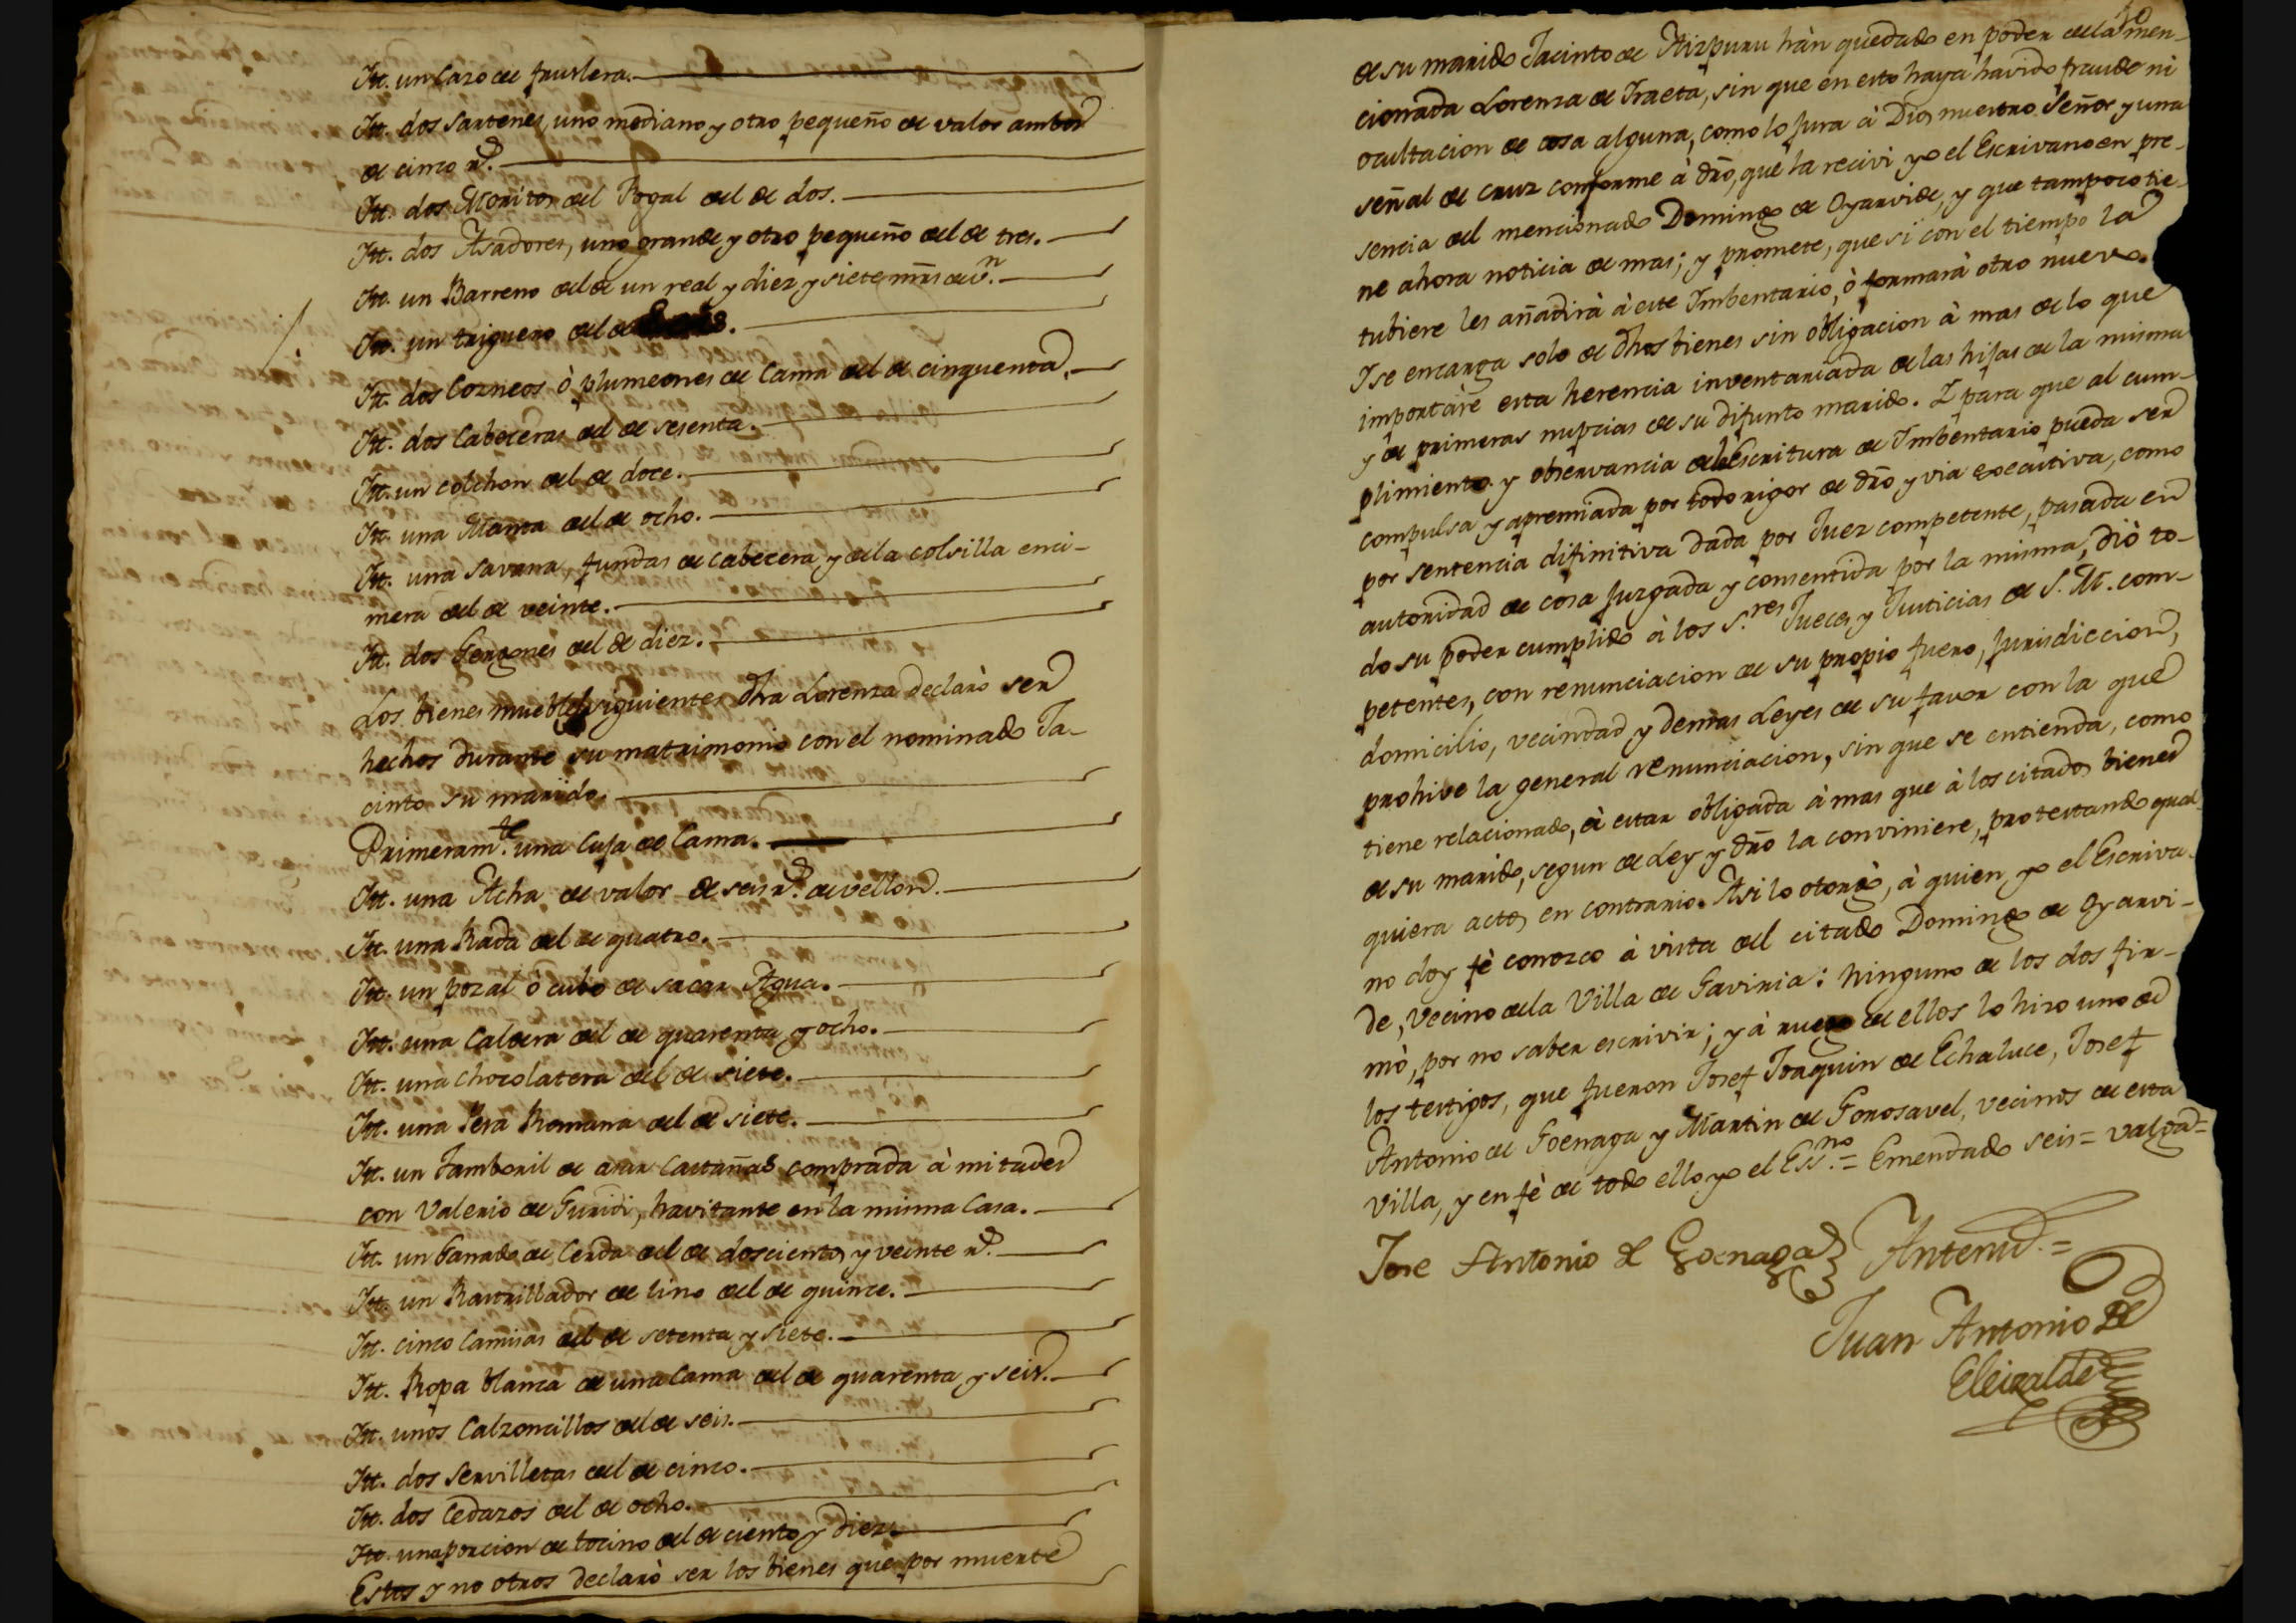 Itt. un Cazo de fruslera.
Itt. dos sartenes, uno mediano y otro pequeño de valor ambos
de cinco r.s
Itt. dos Moritos del Fogal del de dos.
Itt. dos Asadores, uno grande y otro pequeño del de tres.
Itt. un Barreno del de un real y diez y siete mrs de v.n
Itt. un triguero del de seis.
Itt. dos Cozneos ò plumeones de Cama del de cinquenta.
Itt. dos Cabeceras del de sesenta.
Itt. un colchon del de doce.
Itt. una Manta del de ocho.
Itt. una Savana, fundas de Cabecera, y de la colsilla enci-
mera del de veinte.
Itt. dos Gergones del de diez.
Los bienes muebles siguientes dha Lorenza declarò ser
hechos durante su matrimonio con el nominado Ja-
cinto su marido.
Primeram.te una Cuja de Cama.
Itt. una Acha de valor de seis r.s de vellon.
Itt. una Rada del de quatro.
Itt. un pozal ò cubo de sacar Agua.
Itt. una Caldera del de quarenta y ocho.
Itt. una chocolatera del de siete.
Itt. una Pesa Romana del de siete.
Itt. un Tamboril de asar Castañas comprada à mitades
con Valerio de Guridi, havitante en la misma Casa.
Itt. un Ganado de Cerda del de doscientos y veinte r.s
Itt. un Rastrillador de lino del de quince.
Itt. cinco Camisas del de setenta y siete.
Itt. Ropa blanca de una Cama del de quarenta y seis.
Itt. unos Calzoncillos del de seis.
Itt. dos Servilletas del de cinco.
Itt. dos Cedazos del de ocho.
Itt. una porcion de tocino del de ciento y diez.
Estos y no otros declarò ser los bienes que por muerte
de su marido Jacinto de Aizpuru hàn quedado en poder de la men-
cionada Lorenza de Iraeta, sin que en esto haya havido fraude ni
ocultacion de cosa alguna, como lo jura à Dios nuestro Señor y una
señal de cruz conforme à dro, que la recivi yo el Escrivano en pre-
sencia del mencionado Domingo de Oyarvide, y que tampoco tie-
ne ahora noticia de mas; y promete, que si con el tiempo la
tubiere les añadirà à este Imbentario, ò formarà otro nuevo.
I se encarga solo de dhos bienes sin obligacion à mas de lo que
importàre esta herencia inventariada de las hijas de la misma
y de primeras nupcias de su difunto marido. I para que al cum-
plimiento y observancia de la Escritura de Imbentario pueda ser
compulsa y apremiada por todo rigor de dro y via executiva, como
por sentencia difinitiva dada por Juez competente, pasada en
autoridad de cosa juzgada, y consentida por la misma, diò to-
do su poder cumplido à los S.res Jueces y Justicias de S. M. com-
petentes, con renunciacion de su propio fuero, jurisdiccion,
domicilio, vecindad y demas Leyes de su favor con la que
prohive la general renunciacion, sin que se entienda, como
tiene relacionado, à estar obligada à mas que à los citados bienes
de su marido, segun de Ley y dro la conviniere, protestando qual-
quiera actos en contrario. Asi lo otorgò, à quien yo el Escriva-
no doy fè conozco à vista del citado Domingo de Oyarvi-
de, Vecino de la Villa de Gaviria: ninguno de los dos fir-
mò, por no saber escrivir; y à ruego de ellos lo hizo uno de
los testigos, que fueron Josef Joaquin de Echaluce, Josef
Antonio de Goenaga y Martin de Gorosavel, vecinos de esta
Villa, y en fè de todo ello yo el Ess.no = Emendado seis = valga =
Jose Antonio de Goenaga Antemi. =
Juan Antonio de
Eleizalde